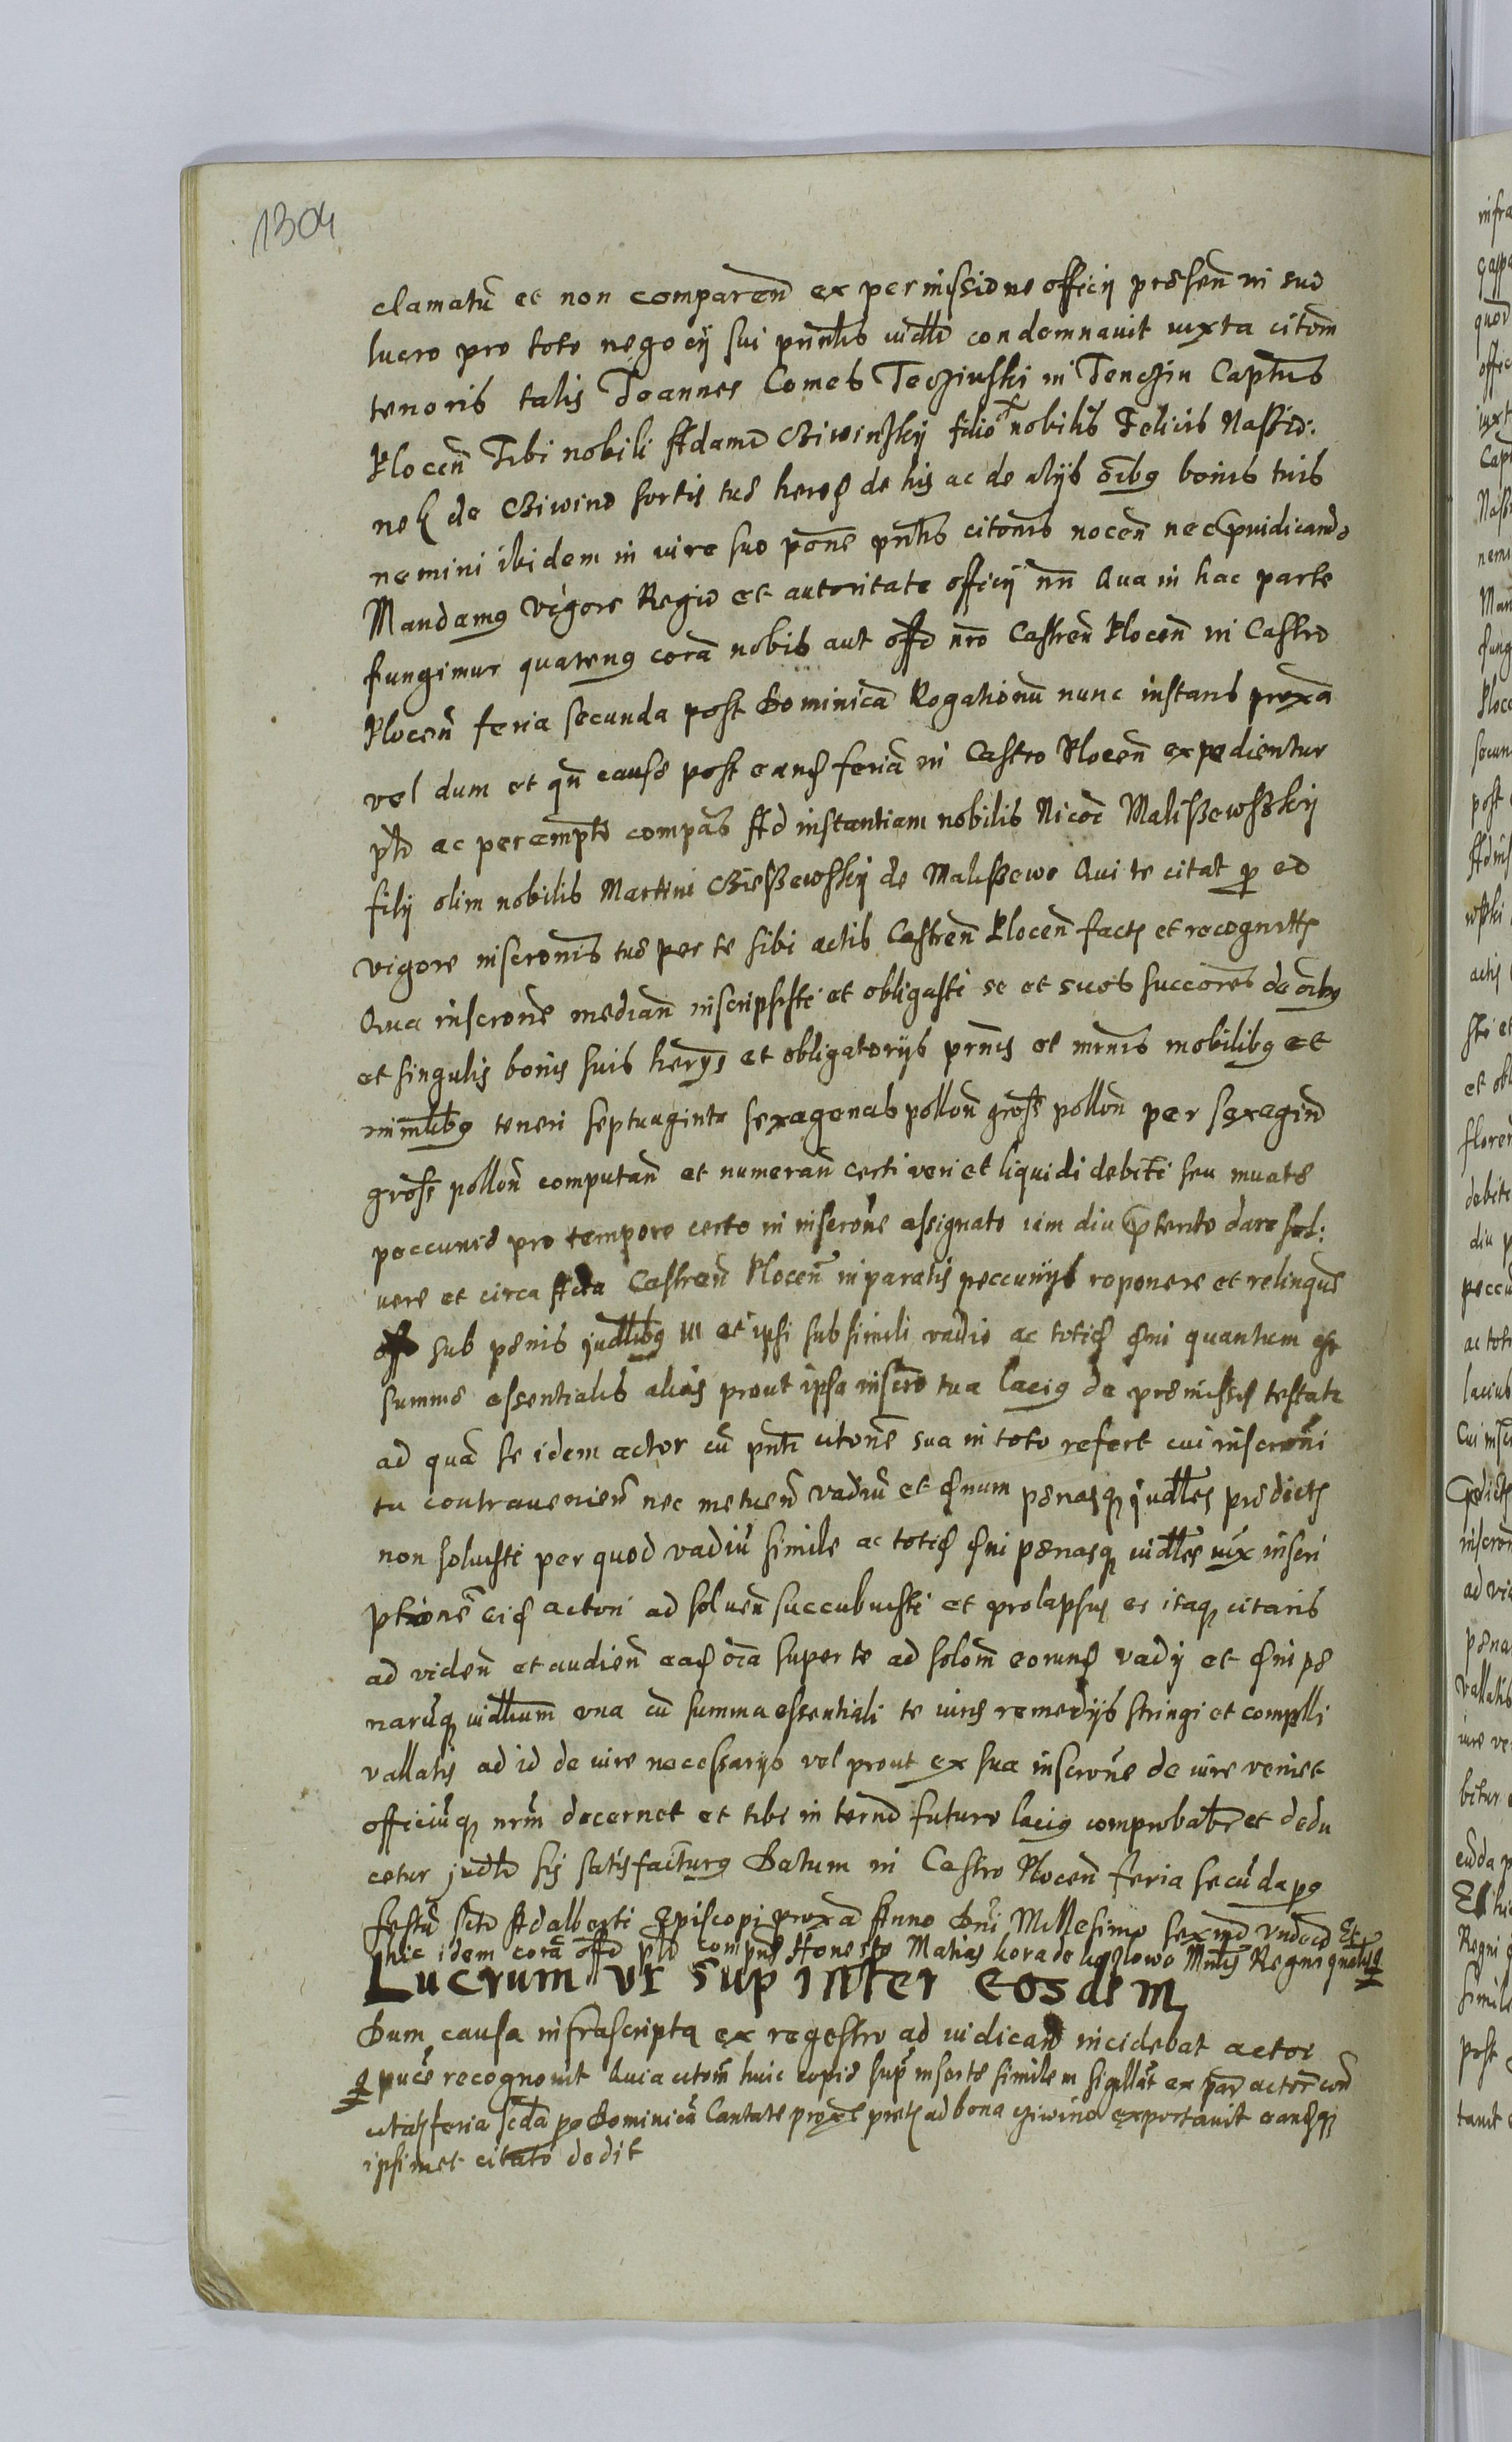 1304
clamatũ et non comparen̄ ex permissione officij præsen̄ in suo
lucro pro toto negocij sui pn̄tis iudlr condemnauit iuxta citoñm
tenoris talis Joannes Comes Teczinski in Tenczin Captñs
Plocen̄ Tibi nobili Adamo Giwinskij filio nobilis Felicis
de Giwino sortis tuæ de his ac de alijs oĩbg bonis tuis
nemini ibidem in iure suo pn̄tis citonis nocen̄ nec p̃iudicando
Mandamg vigore Regio et autoritate officij nri Qua in hac parte
fungimur quateng corã nobis aut offo nr̃o Castren̄ Plocen̄ in Castro
Plocen̄ feria secunda post Dominicã Rogationũ nunc instans proxa
vel dum et qn̄ causæ post eand feriã in Castro Plocen̄ expedientur
plr ac perempte compãs Ad instantiam nobilis Nicol Malißewßkij
filij olim nobilis Martini Gießewskij de Malißewo Qui te citat p eo
vigore inscronis tuæ per te sibi actis Castren̄ Plocen̄ factę et recognitę
Qua inscrone median̄ inscripsisti et obligasti se et suos succores de oĩbg
et singulis bonis suis herijs et obligatorijs pn̄tis et mobilibg et
immlibg teneri septuaginta sexagenas pollon̄ gross pollon̄ per sexagin̄
gross pollon̄ computan̄ et numeran̄ certi veri et liquidi debiti seu mutuatæ
peccuniæ pro tempore certo in inscrone assignato iam diu p̃terito dare sol:
uere et circa Acta Castren̄ Plocen̄ in paratis peccunijs reponere et relinquē
sub pænis judlibg et ipsi sub simili vadio ac totid dni quantum est
summæ essentialis alias prout ipsa inscro tua lacig de præmissis testatr
ad quã se idem actor cũ pn̄ti citone sua in toto refert cui inscroni
tu contraueniēn nec metuen̄ vadiũ et dnum pænasq judles prædictę
non soluisti per quod vadiũ simile ac totid dni pænasq iudles iux inscri
ptionẽ eid actori ad soluen̄ succubuisti et prolapsus es itaq citaris
ad viden̄ et audien̄ ead oĩa super te ad solom eorund vadij et dni pæ
narũq iudlium una cũ summa essentiali te iuris remedijs stringi et complli
vallatis ad id de iure necessarijs vel prout ex sua inscrone de iure veniet
officiũq nrm̃ decernet et tibi in termo futuro lacig comprobabr et dedu
cetur judlr sis satisfacturg Datum in Castro Plocen̄ feria secũda po
festũ scti Adalberti Episcopi proxa Anno Dni Millesimo sexmo undeco Et
hic idem corã offo plr compns Honestg Matias kora de kozlowo Mnlis Regni gnalis
Lucrum vt sup inter eosdem
Dum causa infrascripta ex regestro ad iudican̄ incidebat actor
pucē recognouit Quia citom huic copiæ supg insertæ similem sigillãt ex par actoris con
citatũ feria scda po Dominicã Cantate proxe pretę ad bona Giwino exportauit eandq
ipsimet citato dedit